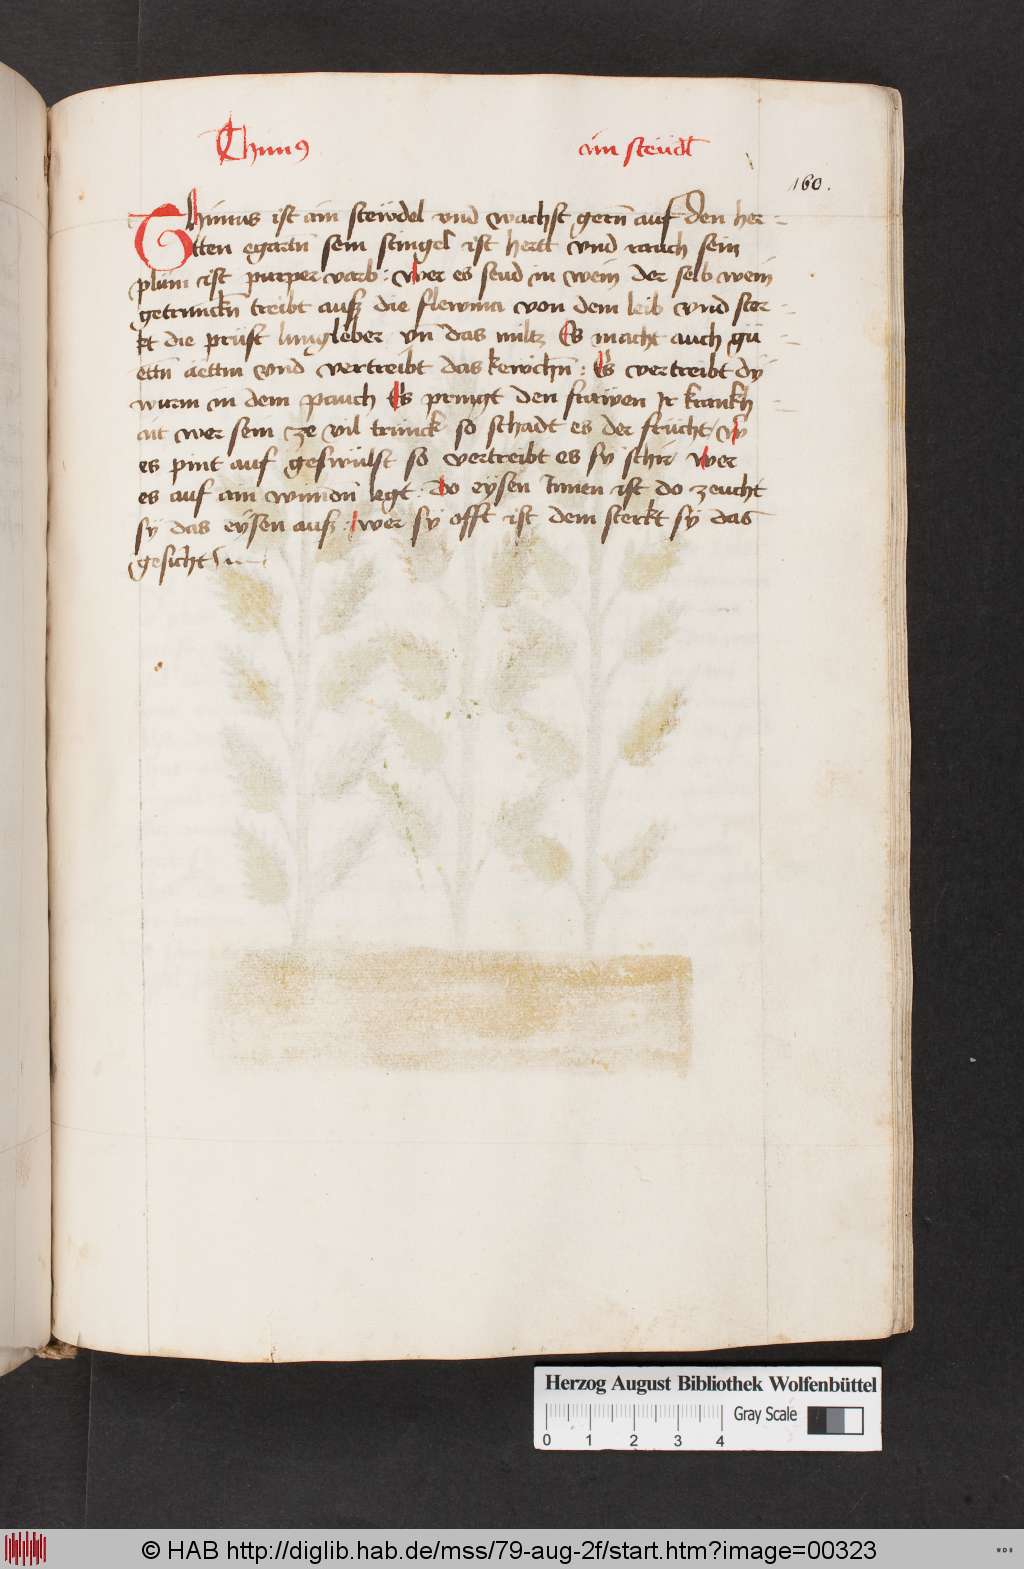 Thimꝰ ain steüdl
160.
Thimus ist ain stewdel vnd wachst gern̄ auf den her-
tten egartn̄ sein stingel ist hertt vnd rauch sein
plüm ist purper varb : wer es seud in wein der selb wein
getrunckn̄ treibt auſʒ die flewma von dem leib vnd ster-
kt die prüst lung leber vn̄ das miltz Es macht auch gü-
ettn̄ aettm vnd vertreibt das keichn̄ : Es vertreibt dy
würm in dem pauch Es pringt den frawen Ir krankh
ait wer sein ze vil trinck so schadt es der frücht wer
es pint auf geswülst so vertreibt es sy schir wer
es auf ain wundn̄ legt : Do eysen Innen ist do zeucht
sy das eysen auſʒ : wer sy offt ist dem sterkt sy das
gesicht
Herzog August Bibliothek Wolfenbüttel
Gray Scale
0 1 2 3 4
© HAB http://diglib.hab.de/mss/79-aug-2f/start.htm?image=00323